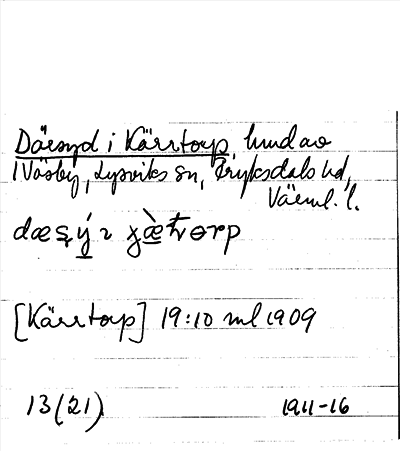 Därsyd i Kärrtorp, hmd av
1 Väsby, Lysviks sn, Fryksdals hd,
Värml. l.
[Kärrtorp] 19:10 ml 1909
13(21) 1911-16